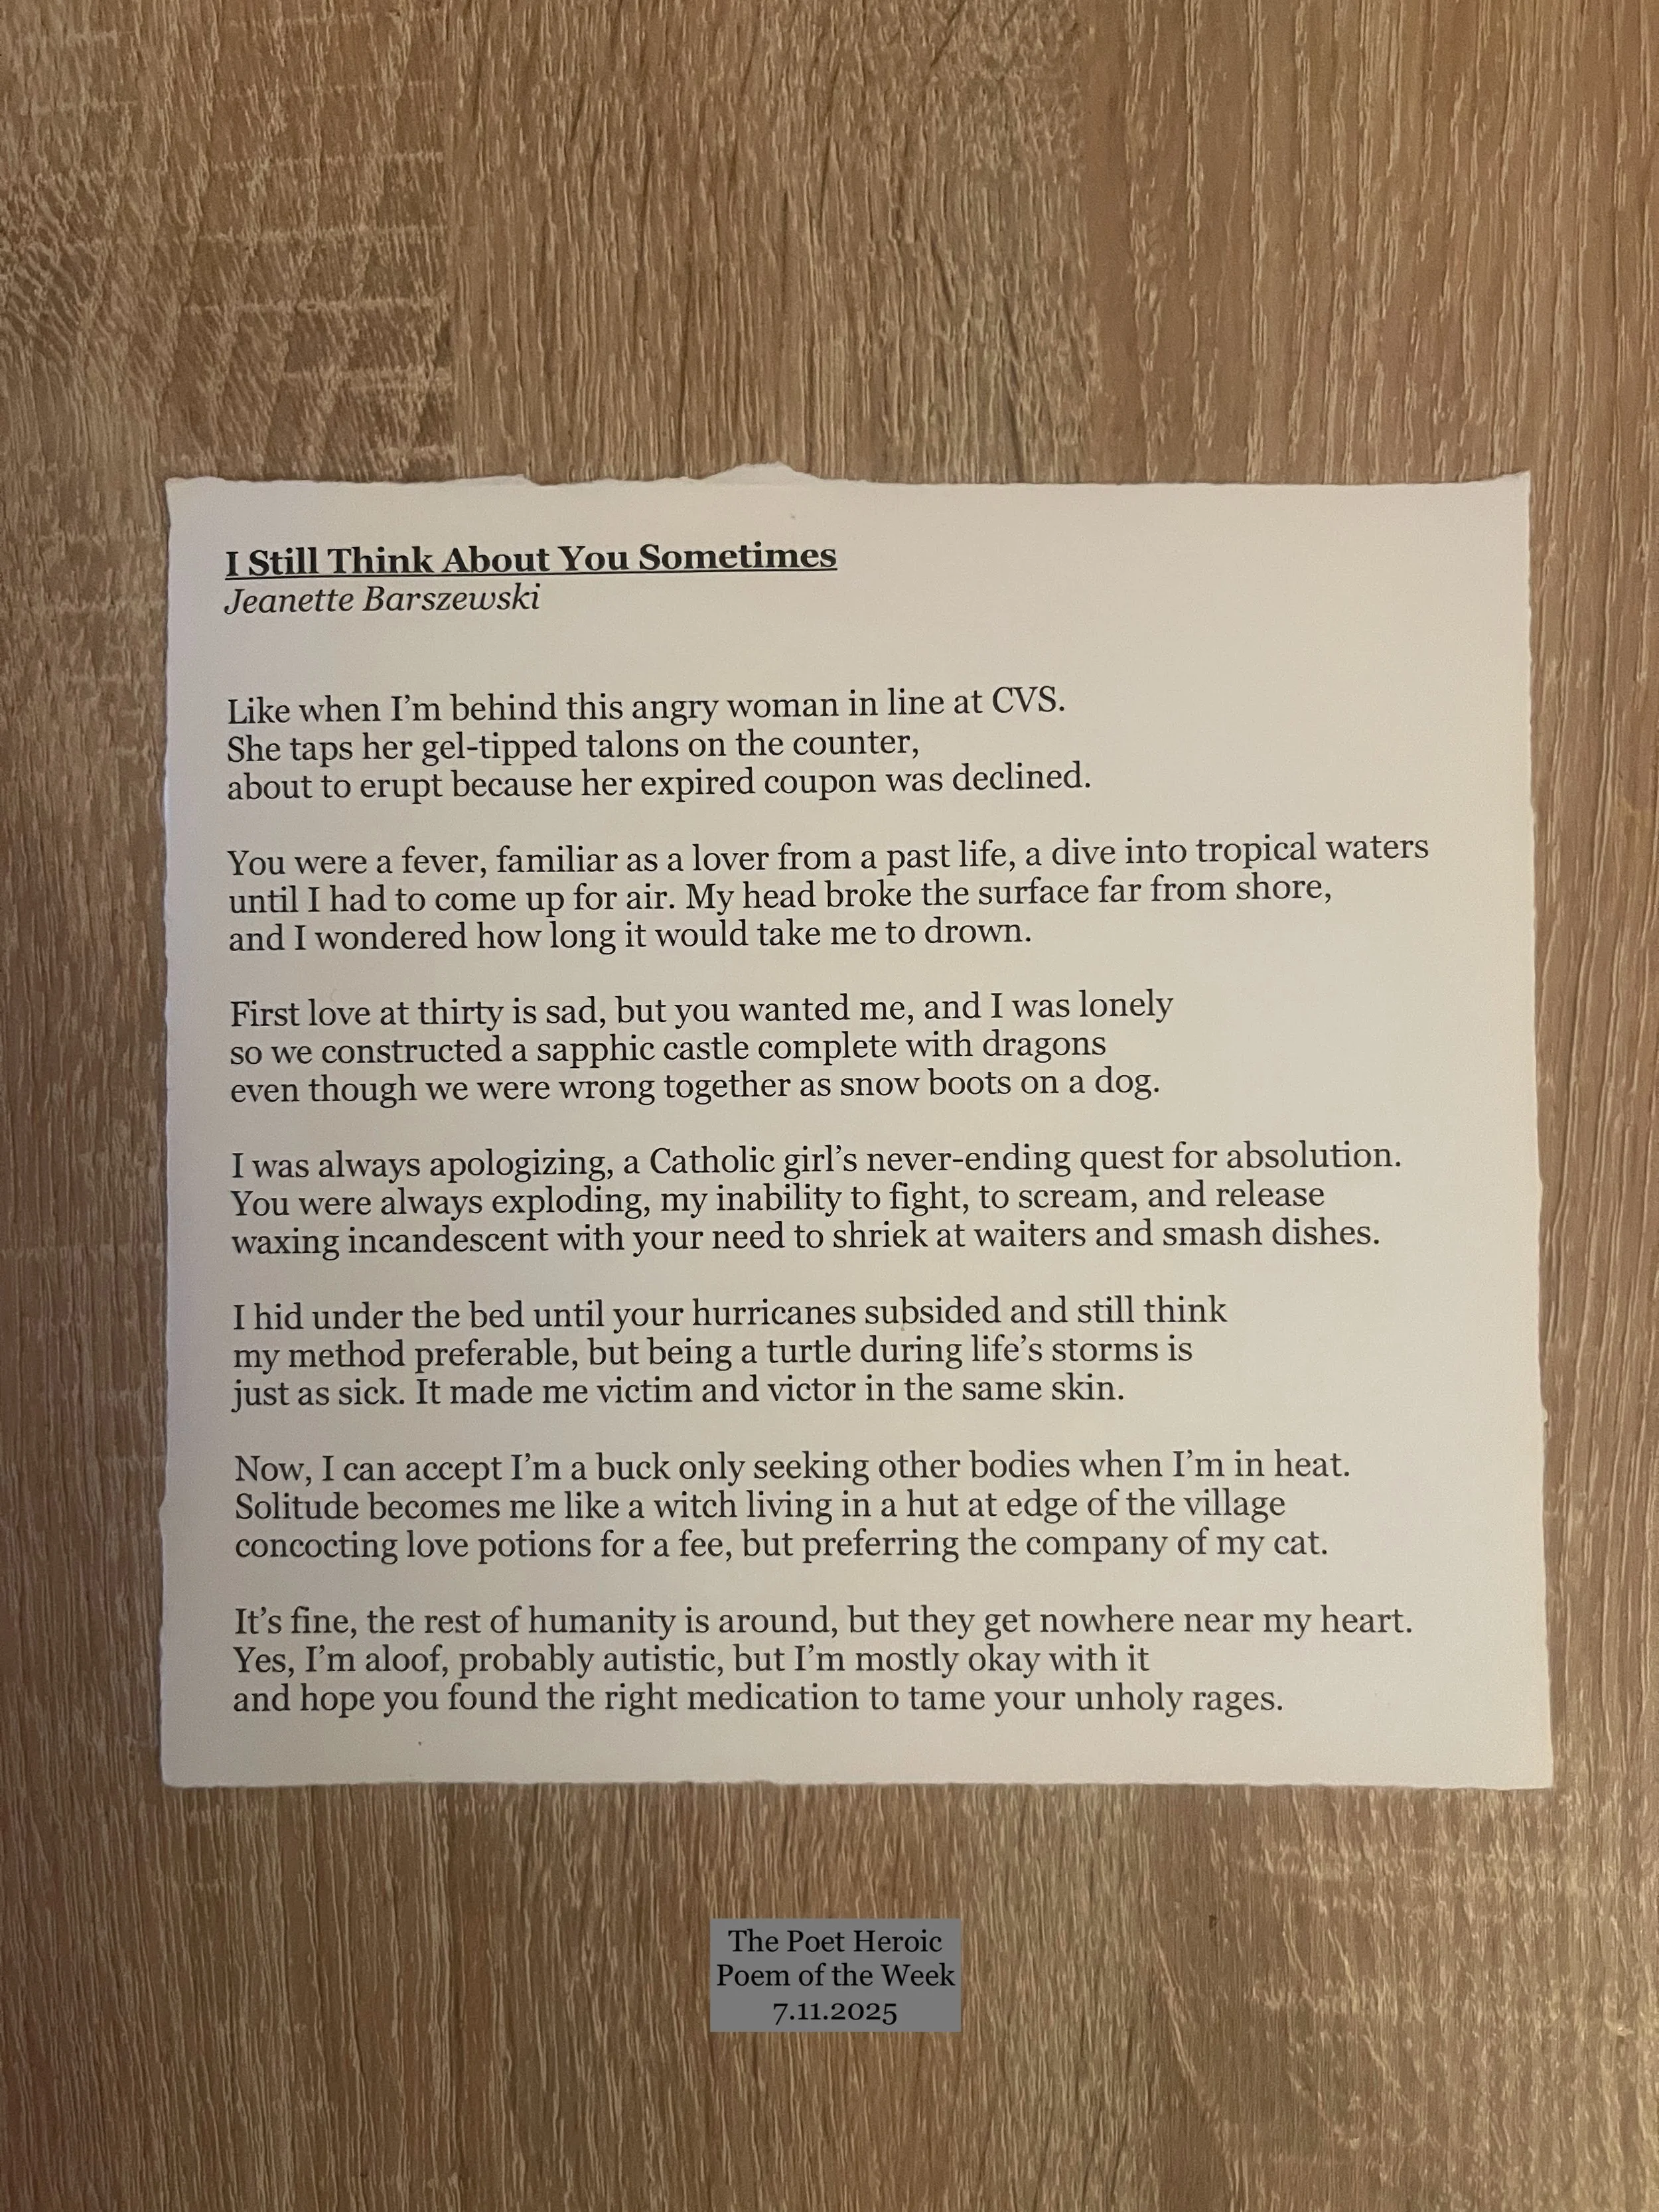 I Still Think About You Sometimes
Jeanette Barszewski
Like when I'm behind this angry woman in line at CVS.
She taps her gel-tipped talons on the counter,
about to erupt because her expired coupon was declined.
You were a fever, familiar as a lover from a past life, a dive into tropical waters
until I had to come up for air. My head broke the surface far from shore,
and I wondered how long it would take me to drown.
First love at thirty is sad, but you wanted me, and I was lonely
so we constructed a sapphic castle complete with dragons
even though we were wrong together as snow boots on a dog.
I was always apologizing, a Catholic girl's never-ending quest for absolution.
You were always exploding, my inability to fight, to scream, and release
waxing incandescent with your need to shriek at waiters and smash dishes.
I hid under the bed until your hurricanes subsided and still think
my method preferable, but being a turtle during life's storms is
just as sick. It made me victim and victor in the same skin.
Now, I can accept I'm a buck only seeking other bodies when I'm in heat.
Solitude becomes me like a witch living in a hut at edge of the village
concocting love potions for a fee, but preferring the company of my cat.
It's fine, the rest of humanity is around, but they get nowhere near my heart.
Yes, I'm aloof, probably autistic, but I'm mostly okay with it
and hope you found the right medication to tame your unholy rages.
The Poet Heroic
Poem of the Week
7.11.2025